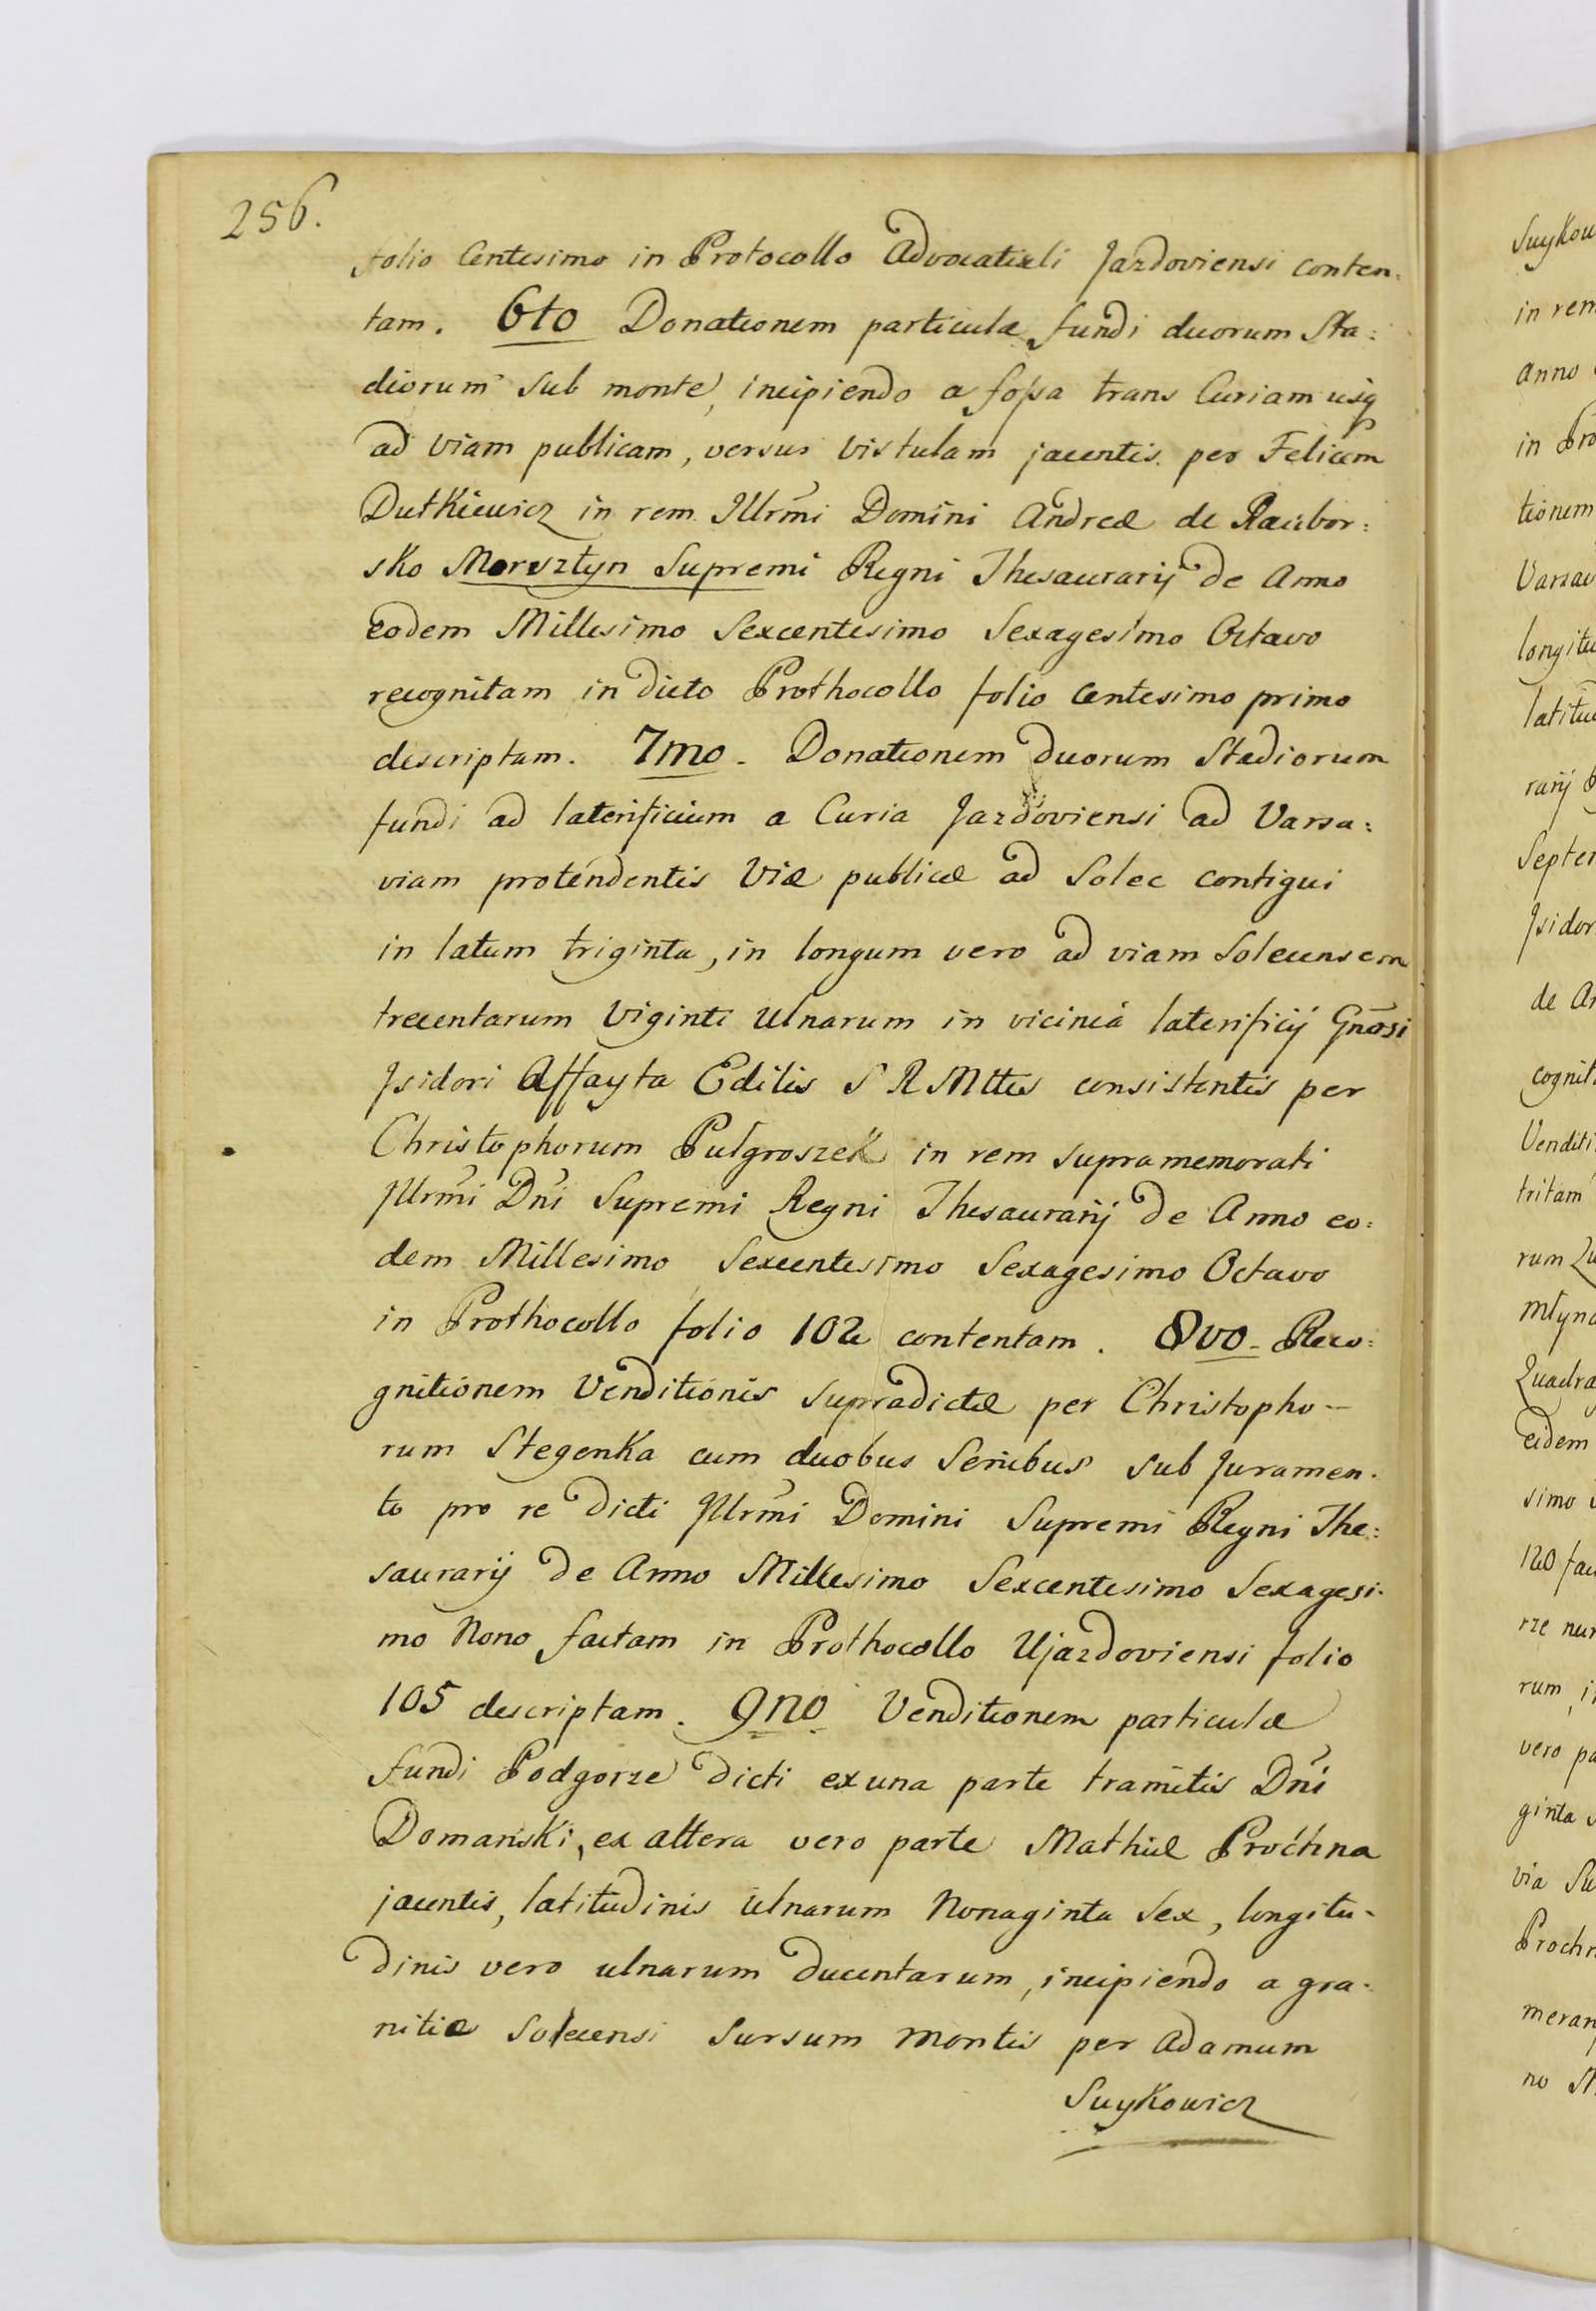 256.
folio Centesimo in Protocollo Advocatiali Jazdoviensi conten-
tam. 6to Donationem particulæ fundi duorum Sta:
diorum sub monte, incipiendo a fossa trans Curiam usq
ad viam publicam, versus Vistulam jacentis per Felicem
Dutkiewicz in rem Illrmi Domini Andreæ de Racibor:
sko Morsztyn Supremi Regni Thesaurarij de Anno
eodem Millesimo Sexcentesimo Sexagesimo Octavo
recognitam in dicto Prothocollo folio Centesimo primo
descriptam. 7mo. Donationem duorum Stadiorum
fundi ad laterificium a Curia Jazdoviensi ad Varsa:
viam protendentis Viæ publicæ ad Solec contigui
in latum triginta, in longum vero ad viam Solecensem
trecentarum Viginti Ulnarum in vicinia laterificij Gnosi
Isidori Affayta Edilis S R Mttis consistentis per
Christophorum Pulgroszek in rem supramemorati
Illrmi Dni Supremi Regni Thesaurarij de Anno eo:
dem Millesimo Sexcentesimo Sexagesimo Octavo
in Prothocollo folio 102 contentam. 8vo- Reco:
gnitionem Venditionis supradictæ per Christopho-
rum Stegenka cum duobus Senibus sub Juramen-
to pro re dicti Illrmi Domini Supremi Regni The:
saurarij de Anno Millesimo Sexcentesimo Sexagesi-
mo Nono factam in Prothocollo Ujazdoviensi folio
105 descriptam. 9no Venditionem particulæ
fundi Podgorze dicti ex una parte tramitis Dni
Domański, ex altera vero parte Mathiæ Prochna
jacentis, latitudinis ulnarum Nonaginta sex, longitu-
dinis vero ulnarum ducentarum, incipiendo a gra-
nitie Solecensi sursum montis per Adamum
Suykowicz
Suykow
in rem
anno
in Pro
tionem
Varsav
longitu
latitud
rarij
Septem
Isidor
de An
cognit
Venditi
tritam
rum
Młyna
Quadra
eidem
simo
120 fac
rze
rum
vero pa
ginta
via
Prochn
meran
no